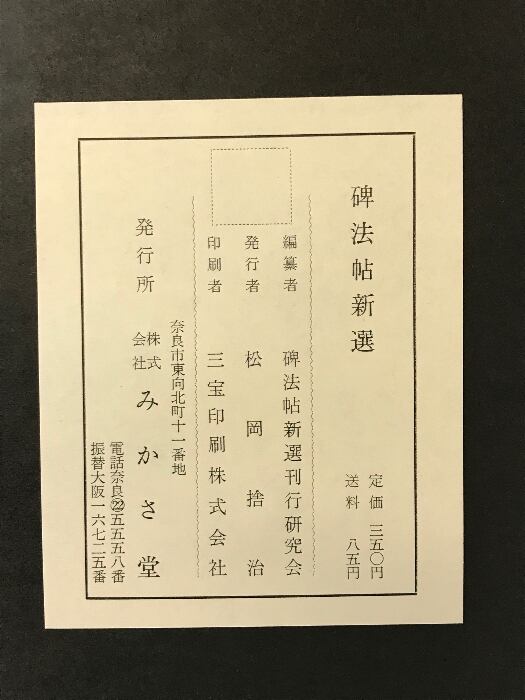 碑法帖新選
定価 三五〇円
送料 八五円
編纂者 碑法帖新選刊行研究会
発行者 松岡捨治
印刷者 三宝印刷株式会社
奈良市東向北町十一番地
発行所 株式会社 みかさ堂
電話奈良㉒五五五八番
振替大阪一六七二五番